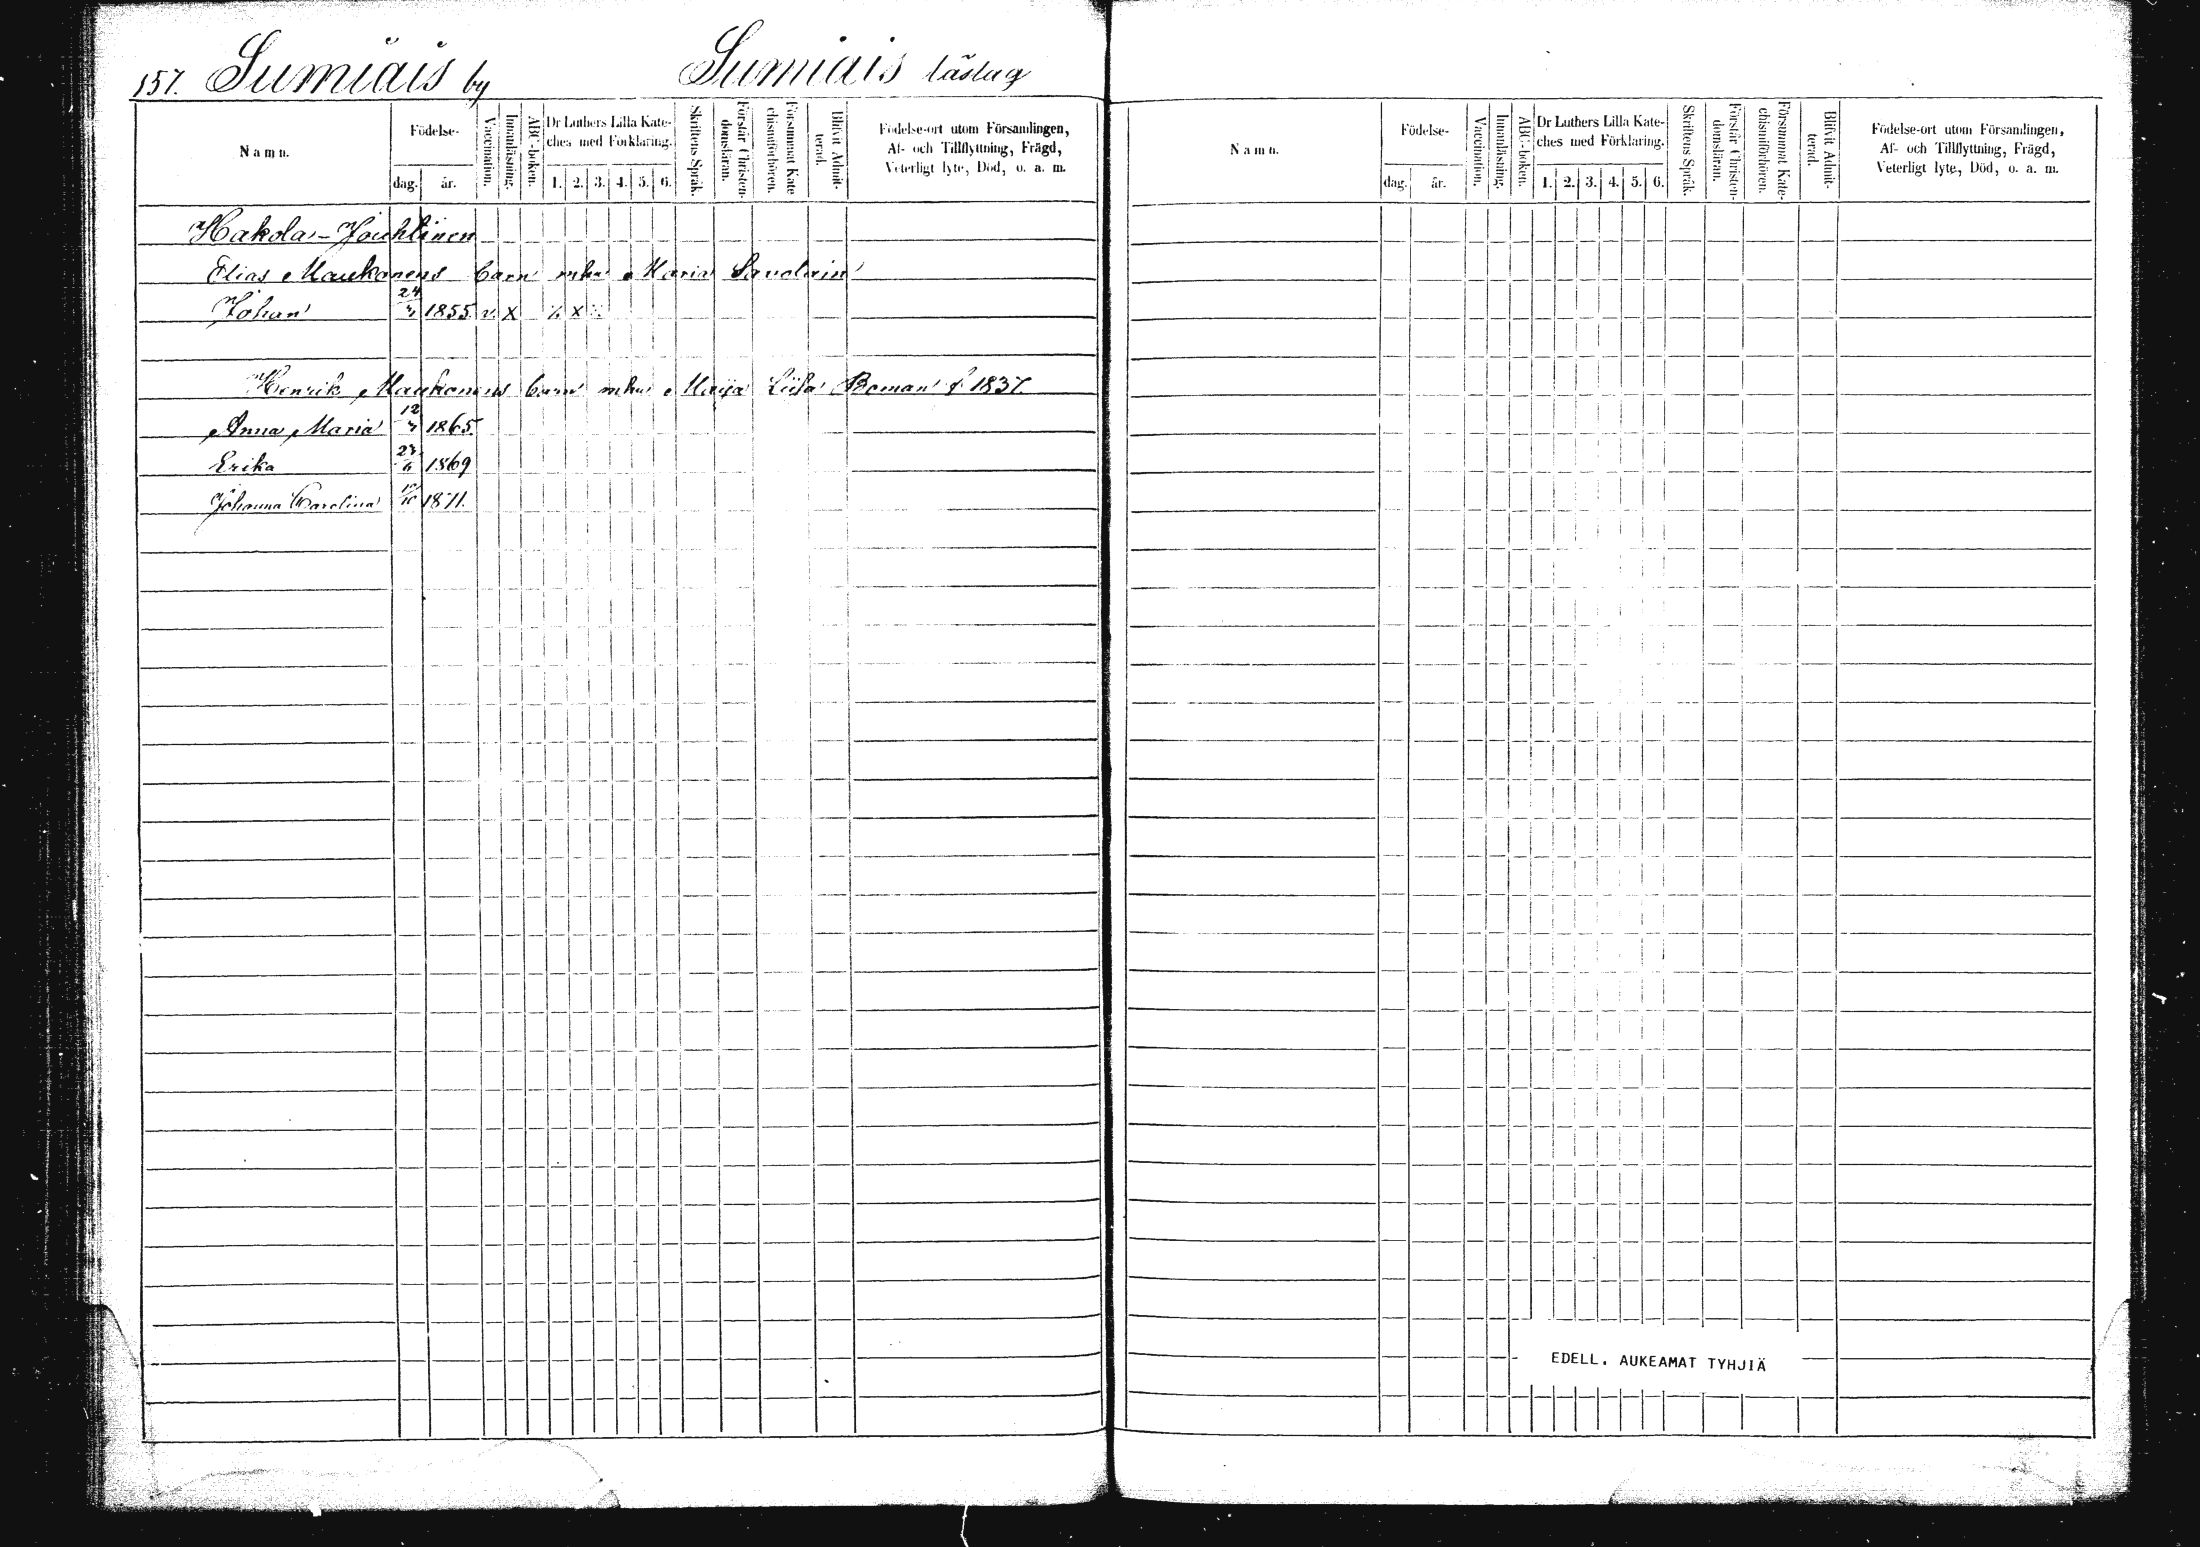 157. Sumiais by Sumiais läslag
Namn. Födelse- dag. år. Vaccination. Innanläsning. ABC-boken. Dr Luthers Lilla Kate-ches med Förklaring. 1. 2. 3. 4. 5. 6. Skriftens Språk. Förstår Christen-domsläran. Försummat Kate-chismiförhören. Blifvit Admit-terad. Födelse-ort utom Församlingen, Af- och Tillflyttning, Frägd, Veterligt lyte, Död, o. a. m.
Hakola-
Elias Maukonens barn mhu Maria Savolain
Johan 24 1855 v X X
Henrik Maukonens barn mhu Maija Liisa Boman f 1837.
Anna Maria 12 1865
Erika 23/6 1869
Johanna Carolina 1871.
Namn. Födelse- dag. år. Vaccination. Innanläsning. ABC-boken. Dr Luthers Lilla Kate-ches med Förklaring. 1. 2. 3. 4. 5. 6. Skriftens Språk. Förstår Christen-domsläran. Försummat Kate-chismiförhören. Blifvit Admit-terad. Födelse-ort utom Församlingen, Af- och Tillflyttning, Frägd, Veterligt lyte, Död, o. a. m.
EDELL. AUKEAMAT TYHJIÄ